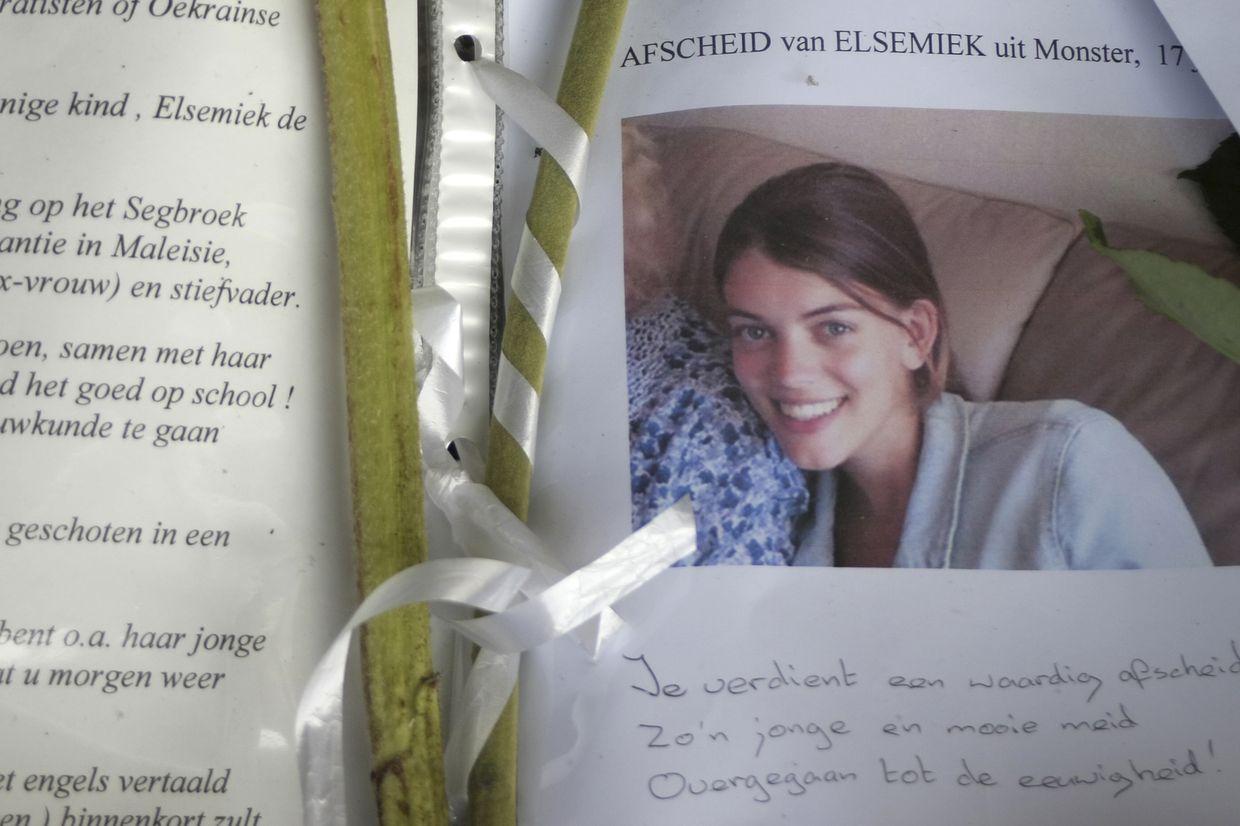 ratisten of Oekrainse
nige kind , Elsemiek de
ng op het Segbroek
antie in Maleisie,
x-vrouw) en stiefvader.
oen, samen met haar
d het goed op school !
uwkunde te gaan
geschoten in een
bent o.a. haar jonge
at u morgen weer
et engels vertaald
en ) binnenkort zult
AFSCHEID van ELSEMIEK uit Monster, 17
Je verdient een waardig afscheid
Zo'n jonge en mooie meid
Overgegaan tot de eeuwigheid!